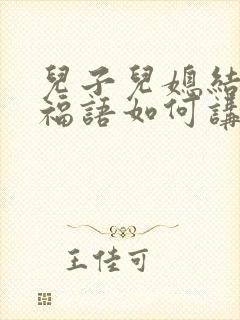 兒子兒媳結
福語如何講
王佳可